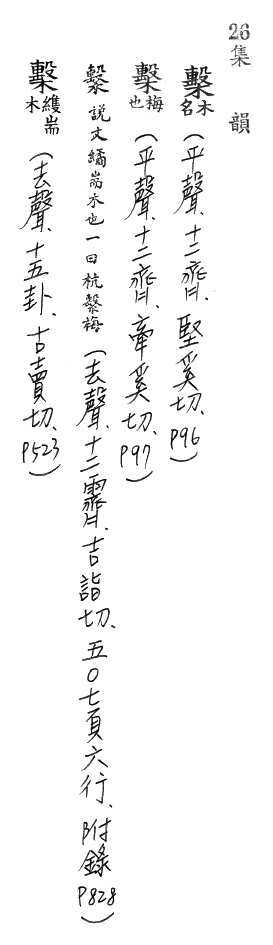 26集韻
檕木名(平聲.十二齊.堅奚切.P96)
檕梅也(平聲.十二齊.牽奚切.P97)
檕說文繘耑木也一曰杭檕梅(去聲.十二霽.吉詣切.五0七頁六行.附錄P828)
檕耑木(去聲.十五卦.古賣切.P523)